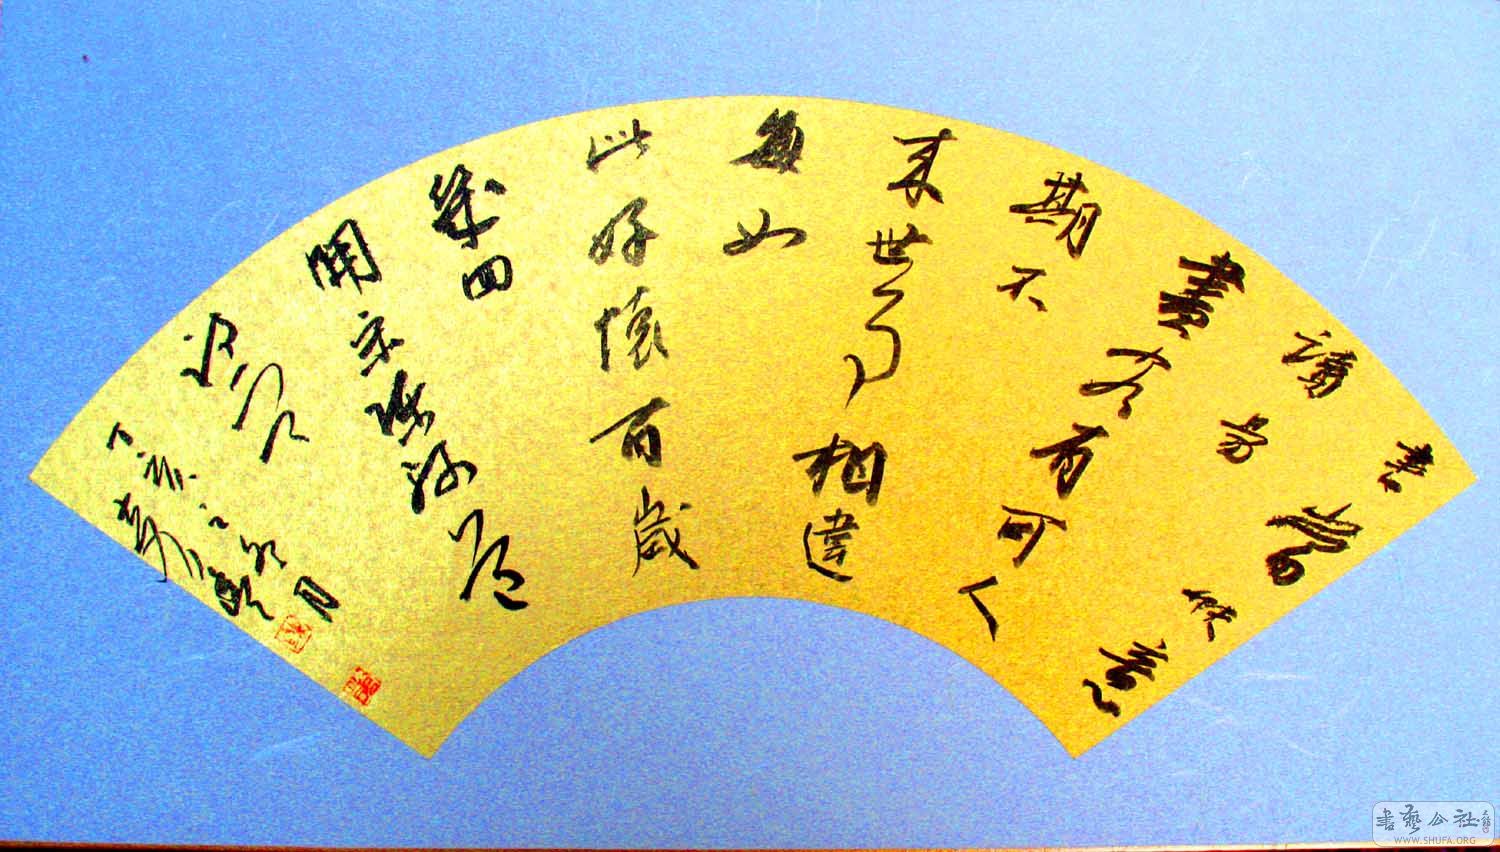 書當快意
讀易
盡客有可人
期不
來世事相違
每如
此好懷百歲
幾回
開宋陳師道
丁亥
月
書藝公社
WWW.SHUFA.ORG